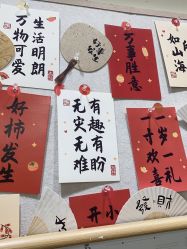 生活明朗
万物可爱
万事胜意
如山海
好柿发生
有趣有盼
无灾无难
一岁一礼
一寸欢喜
开小
發財